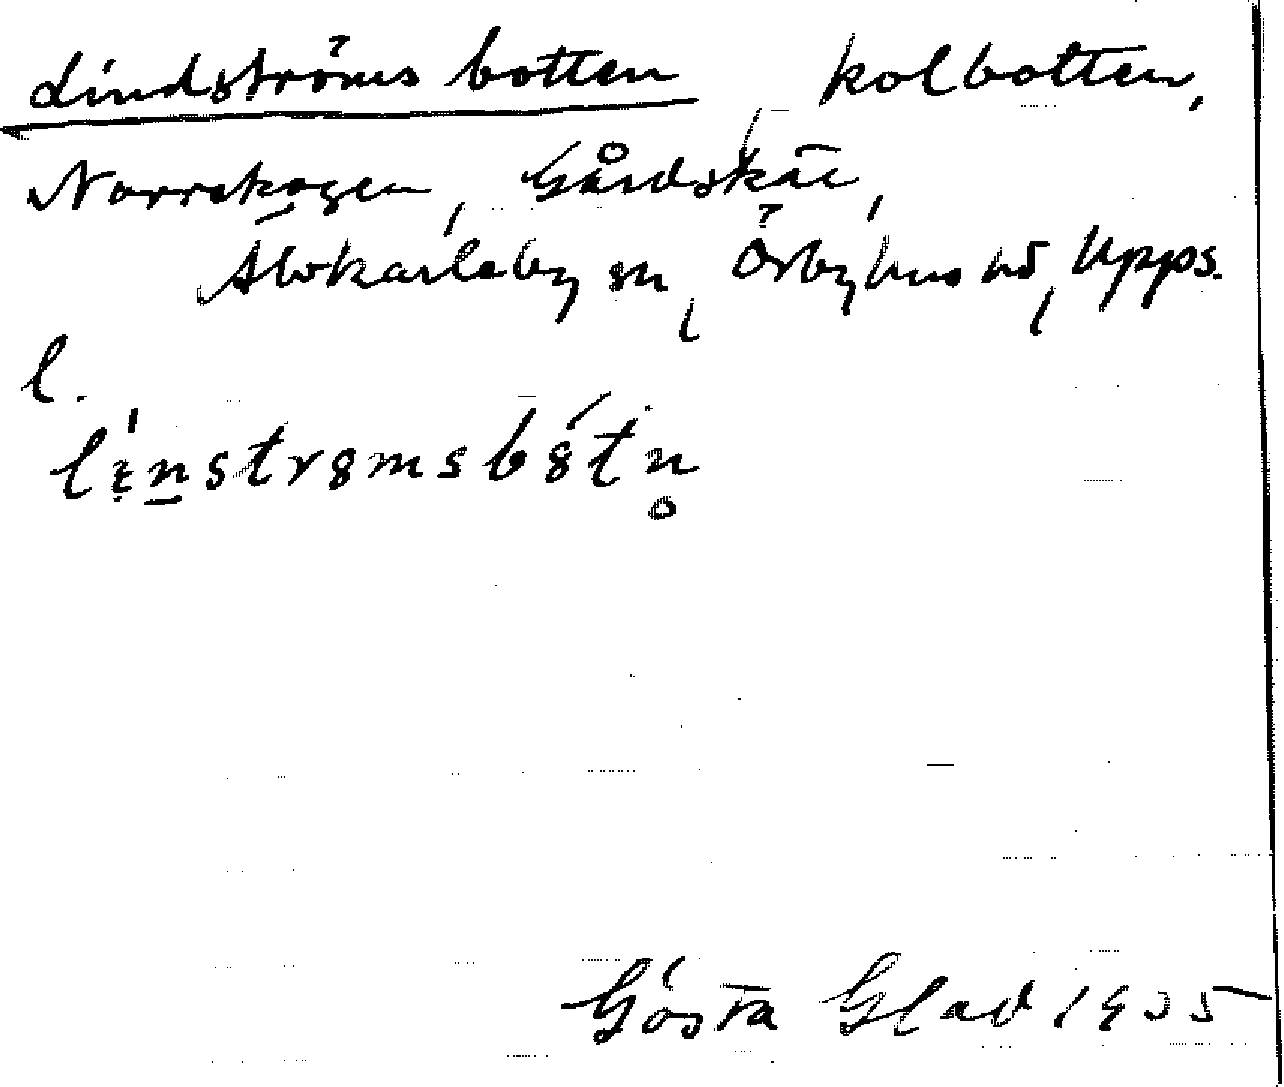 Lindströms botten kolbotten,
Norrskogen, Gårdskär,
Älvkarleby sn, Örbyhus hd, Upps.
l.
Gösta Glad 1935